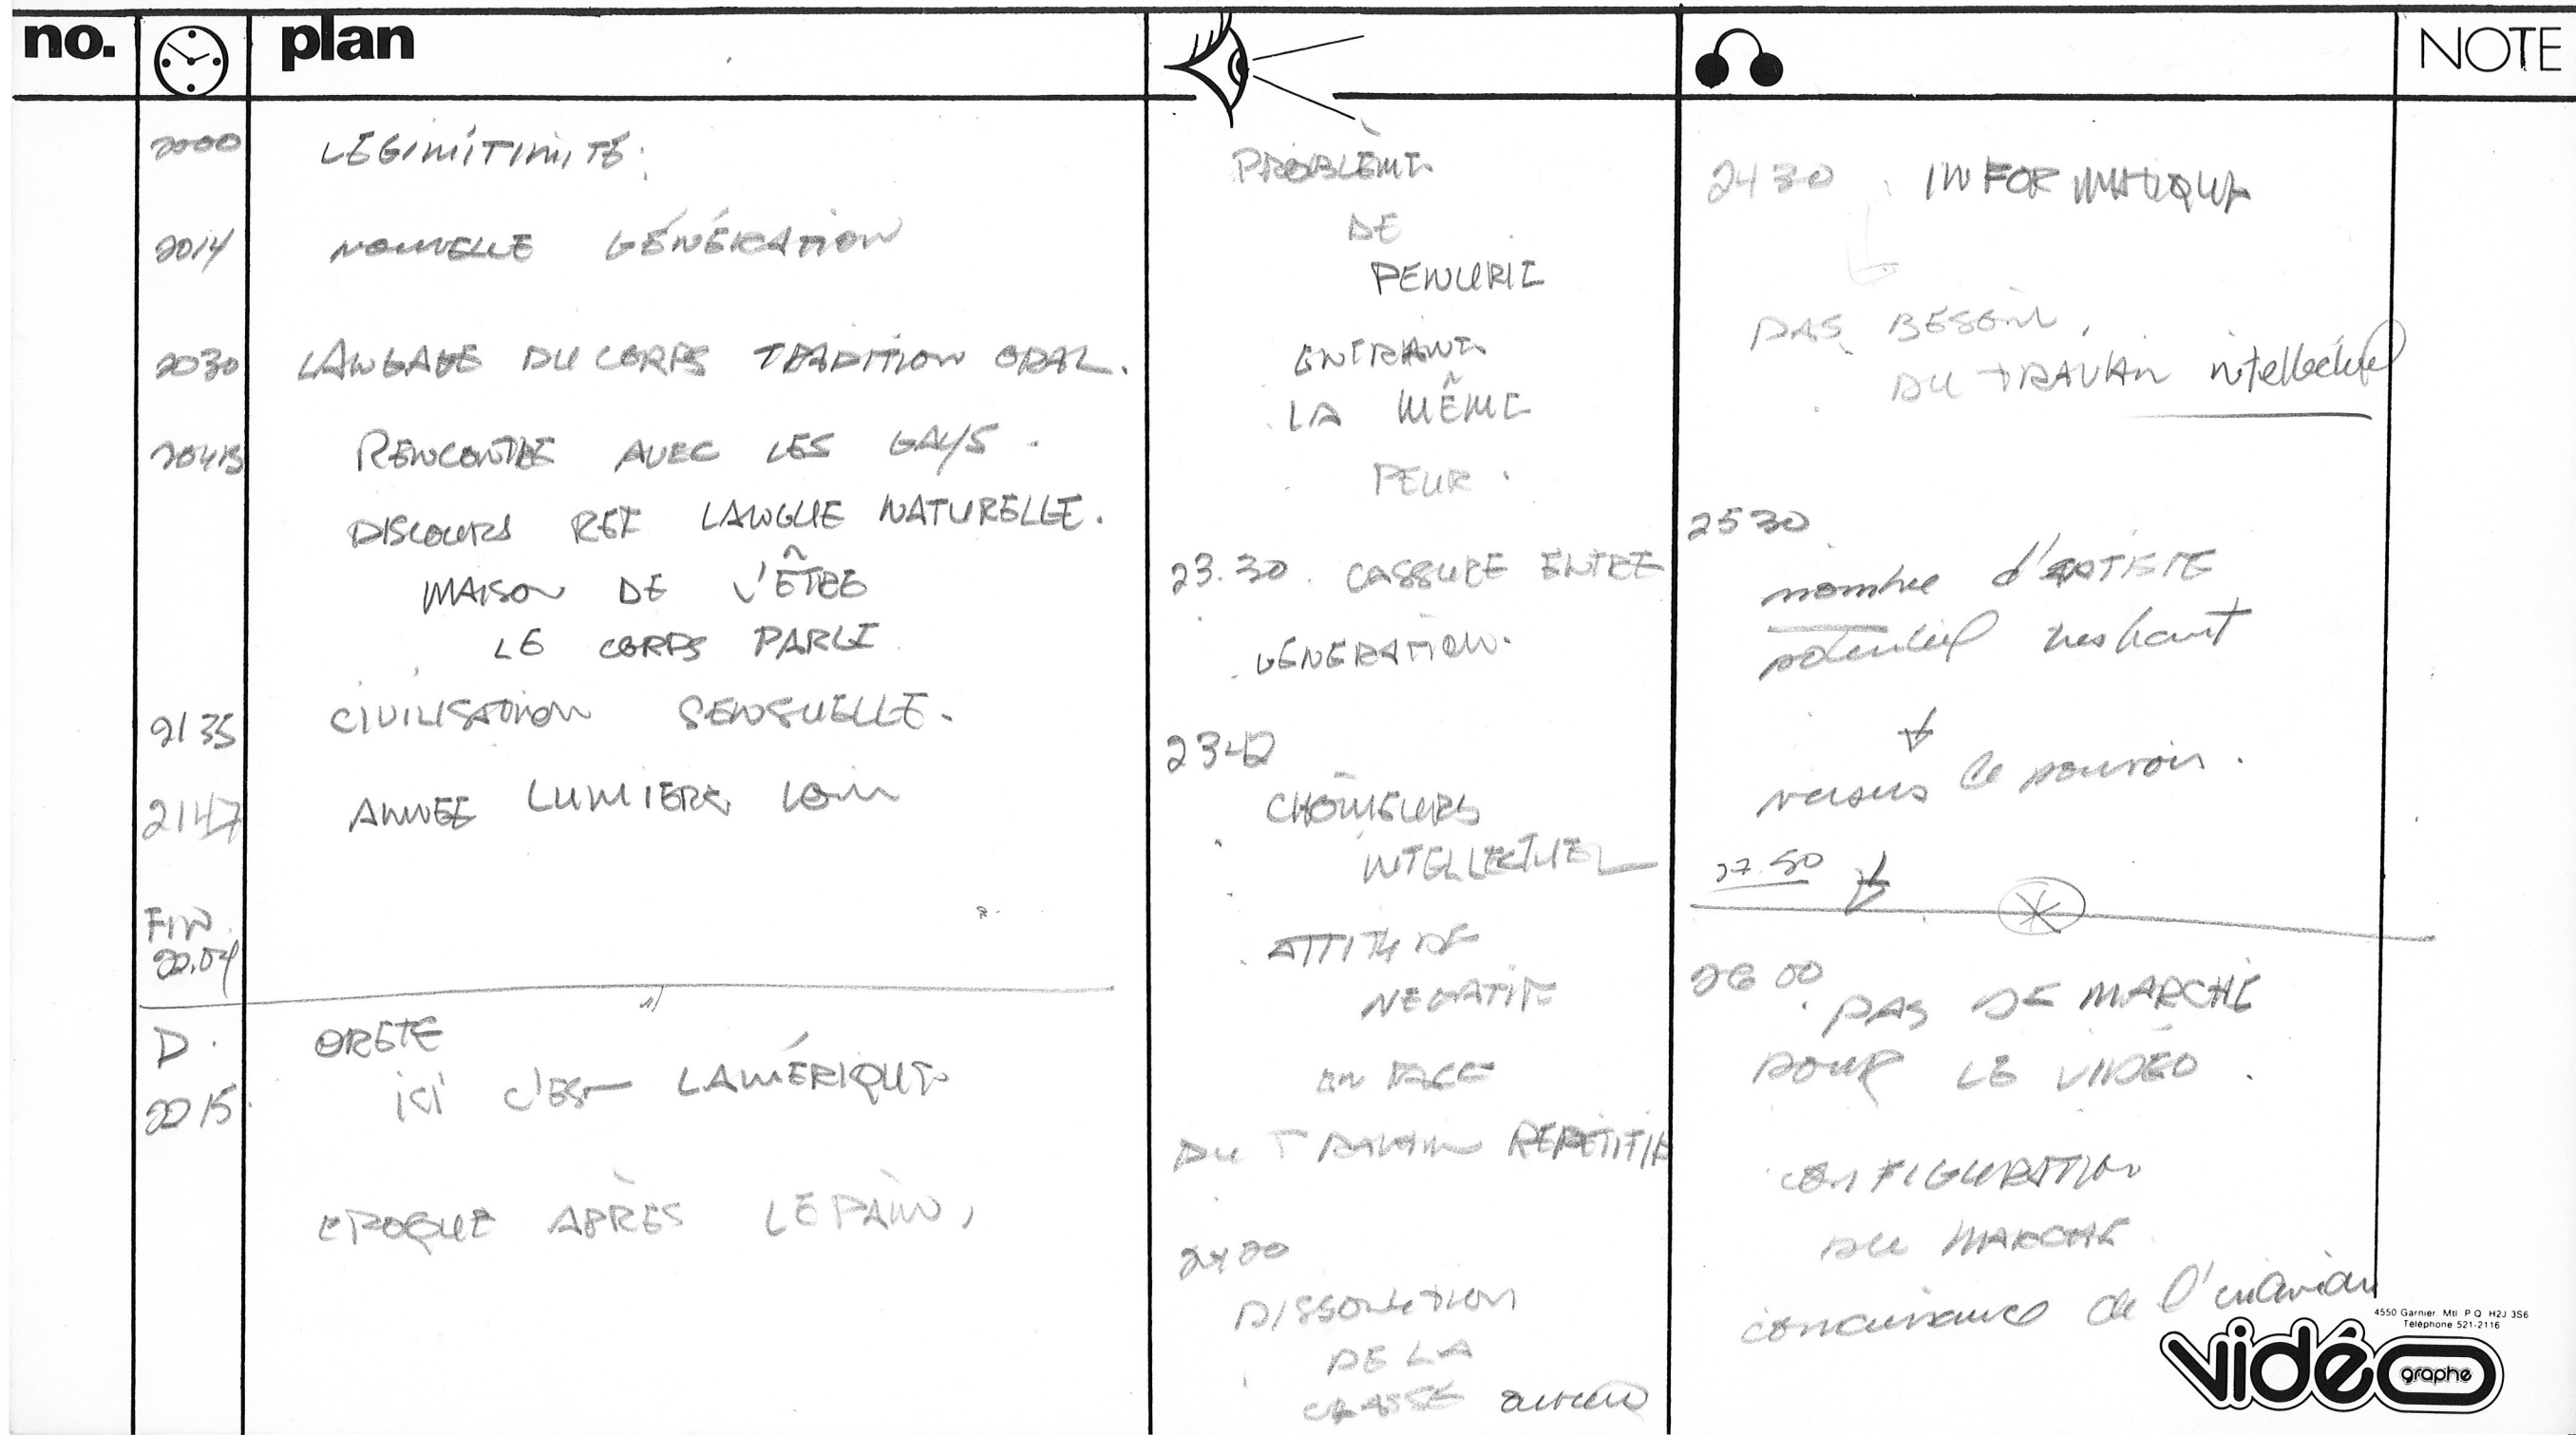 no. plan NOTE
2000 LÉGIMITIMITÉ.
2014 NOUVELLE GÉNÉRATION
2030 LANGAGE DU CORPS TRADITION ORAL.
2045 RENCONTRE AVEC LES GAYS.
DISCOURS REF LANGUE NATURELLE.
MAISON DE L'ÊTRE
LE CORPS PARLE
2135 CIVILISATION SENSUELLE.
2147 ANNEE LUMIERE LOIN
FIN
22.04
D. ORETE
2215 ici C'EST LAMÉRIQUE
EPOQUE APRÈS LEPAIN,
PROBLÈME
DE
PENURIE
ENTRAINE
LA MÊME
PEUR.
23.30. CASSURE ENTRE
GENERATION.
2342
CHÔMEURS
INTELLECTUEL
ATTITUDE
NEGATIVE
EN FACE
DU TRAVAIL REPETITIF
2420
DISSOLUTION
DE LA
CLASSE
2430 INFORMATIQUE
PAS BESOIN,
DU TRAVAIL intellectuel
2530
nombre d'ARTISTE
potentiel tres haut
versus le pouvoir.
27.50
2600
PAS DE MARCHÉ
POUR LE VIDÉO.
CONFIGURATION
DU MARCHÉ
concurrence de
4550 Garnier, Mtl P.Q. H2J 3S6
Téléphone 521-2116
vidéo
graphe